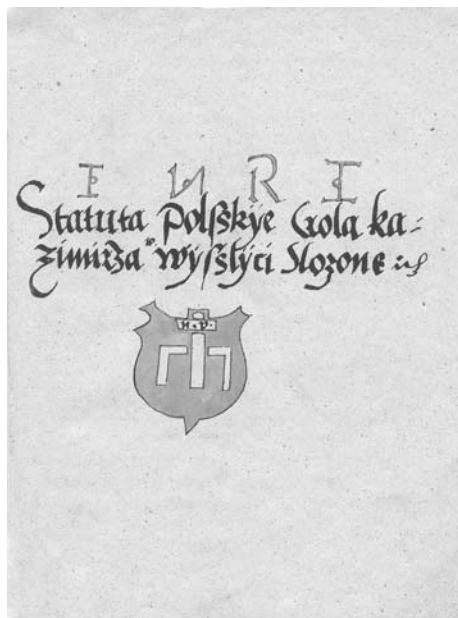 I N R I
Statuta polſskye Crola ka⸗
zimirza w wyſslyci slozone